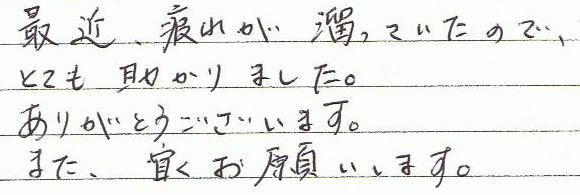 最近、疲れが溜っていたので、
とても助かりました。
ありがとうございます。
また、宜くお願いします。